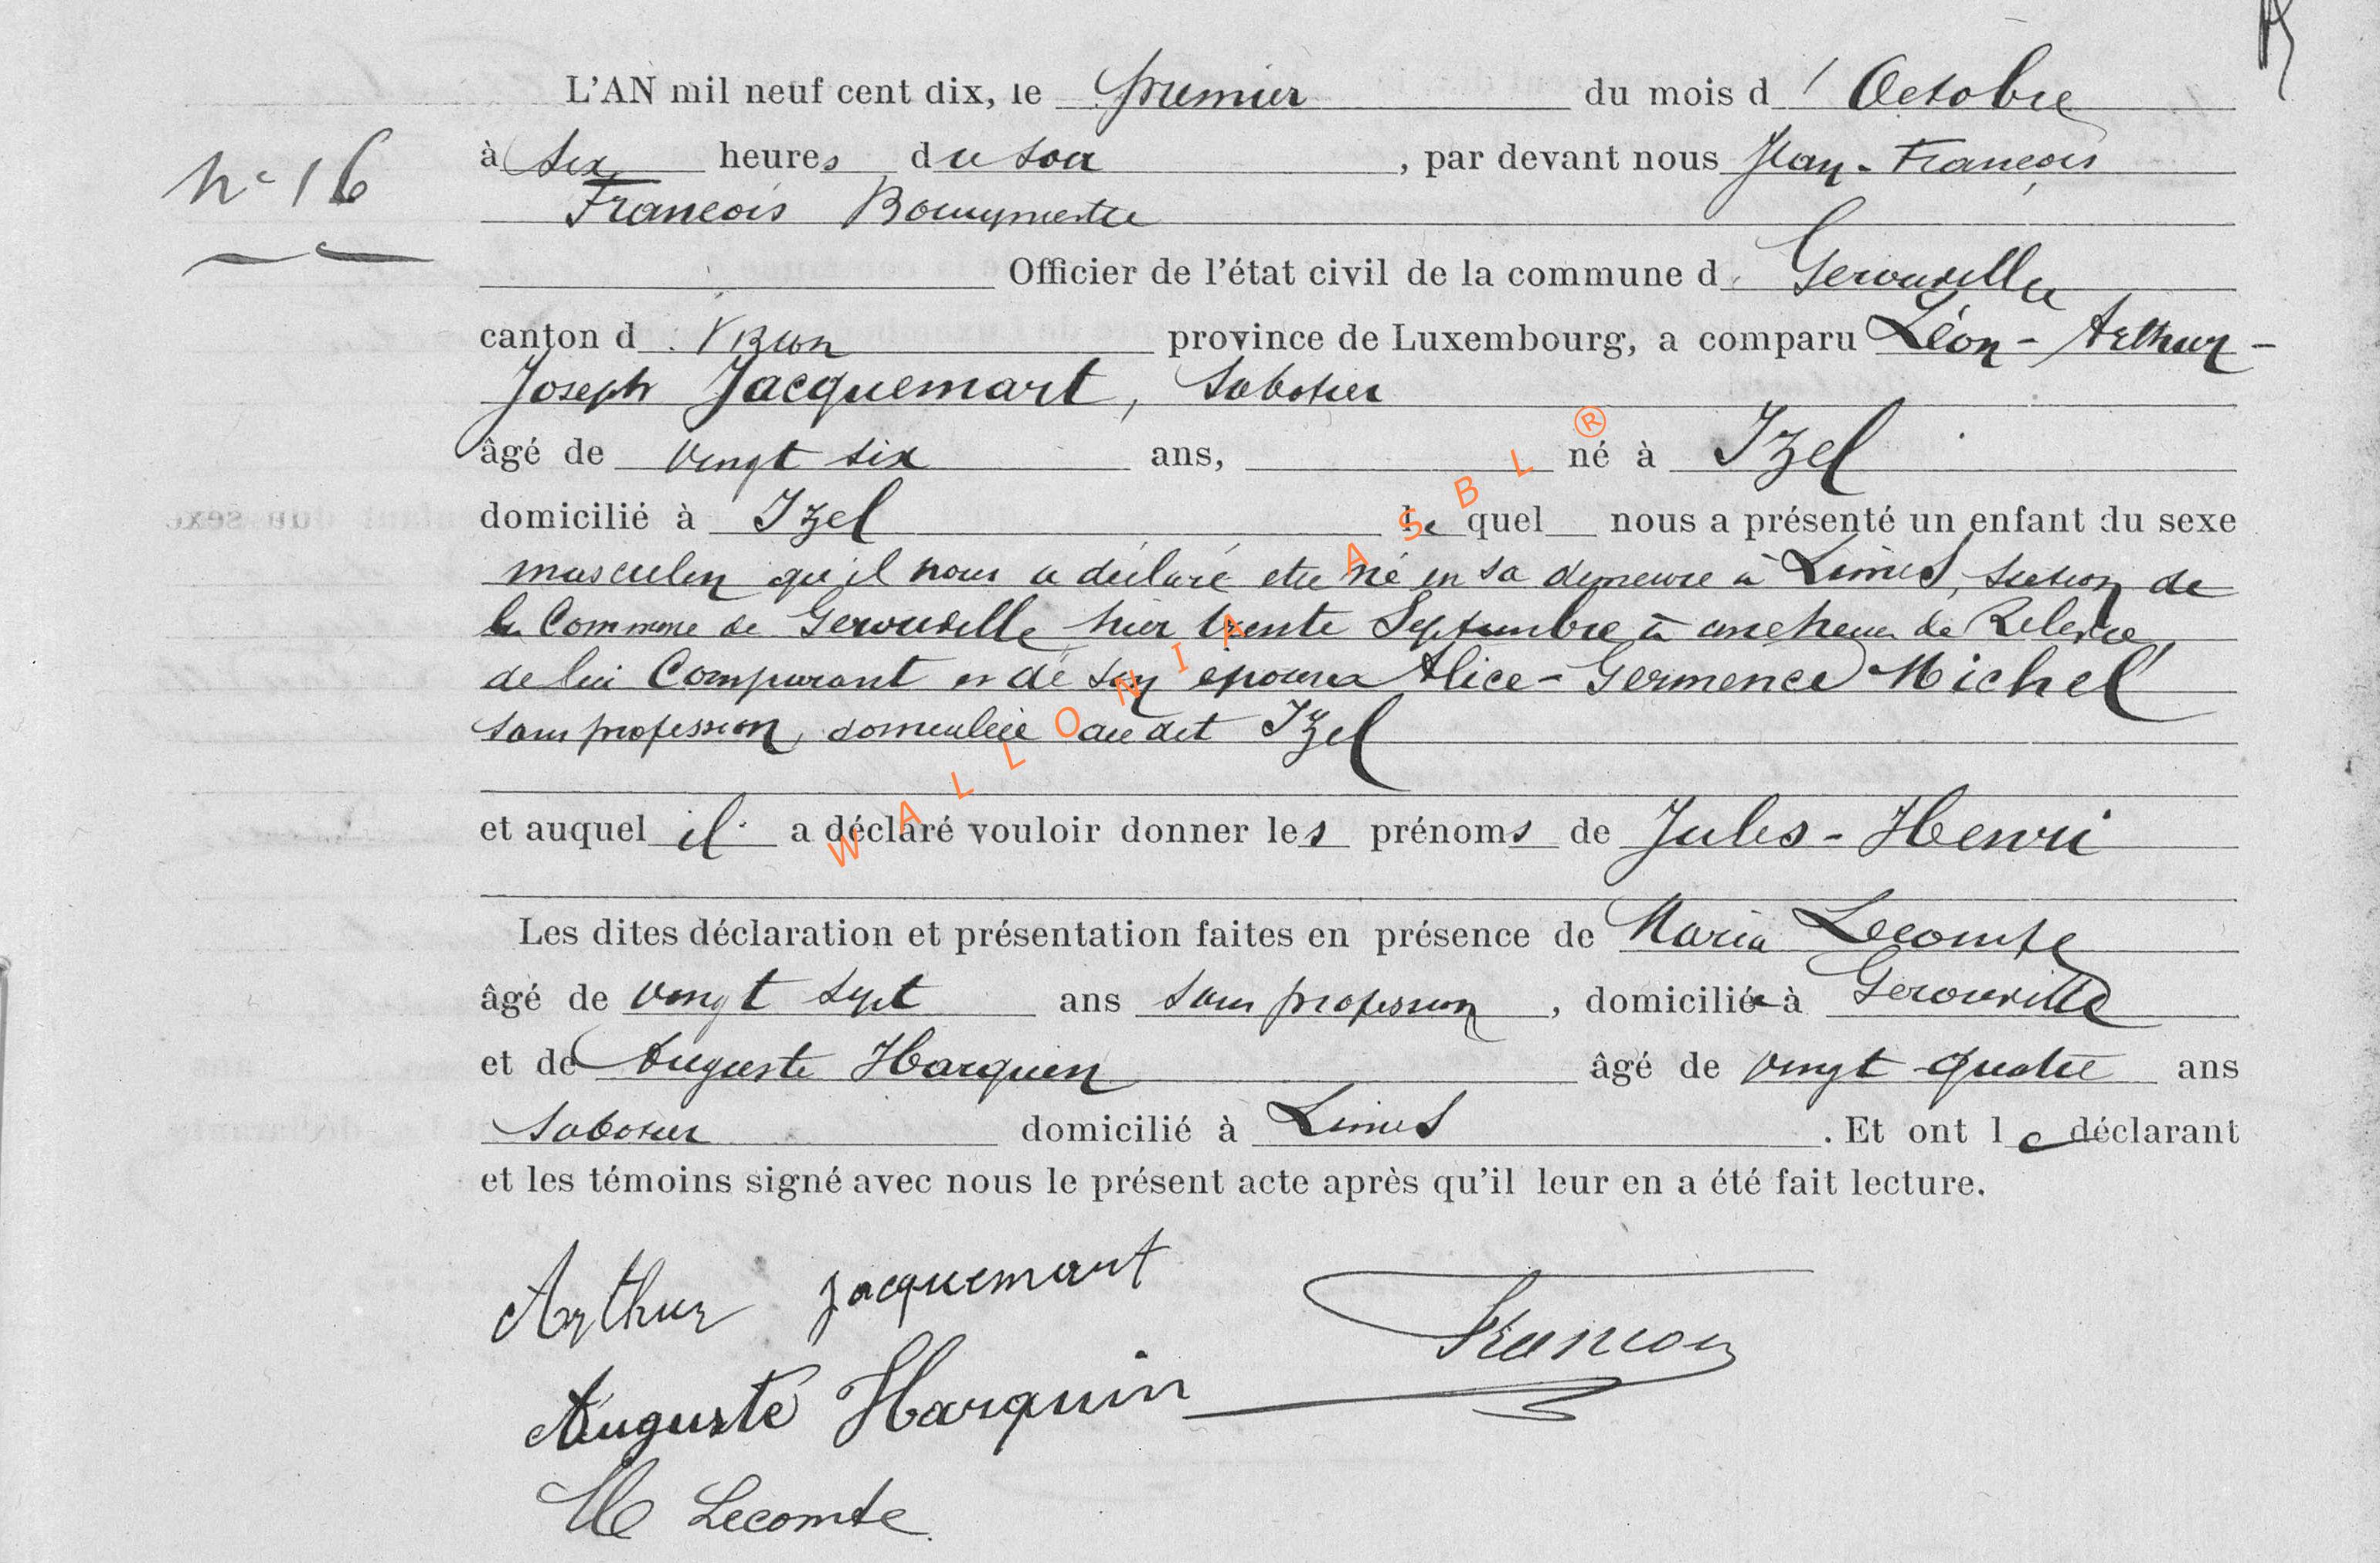 L'AN mil neuf cent dix, le premier du mois d' Octobre
N° 16
à six heures du soir, par devant nous Jean-François
François Bourgmestre
Officier de l'état civil de la commune d Gerouville
canton d Virton province de Luxembourg, a comparu Léon-Arthur-
Joseph Jacquemart, Sabotier
âgé de vingt six ans, né à Izel
domicilié à Izel lequel nous a présenté un enfant du sexe
masculin qu'il nous a déclaré etre né en sa demeure à Limes, section de
la Commune de Gerouville hier trente Septembre à une heure de Relevée,
de lui Comparant et de son epouse Alice-Germence Michel
sans profession, domiciliée au dit Izel
et auquel il a déclaré vouloir donner les prénoms de Jules-Henri
Les dites déclaration et présentation faites en présence de Maria Lecomte
âgé de vingt sept ans sans profession, domiciliée à Gerouville
et de Auguste Harquin âgé de vingt quatre ans
sabotier domicilié à Limes. Et ont le déclarant
et les témoins signé avec nous le présent acte après qu'il leur en a été fait lecture.
Arthur Jacquemart
François
Auguste Harquin
M Lecomte
WALLONIA ASBL ®